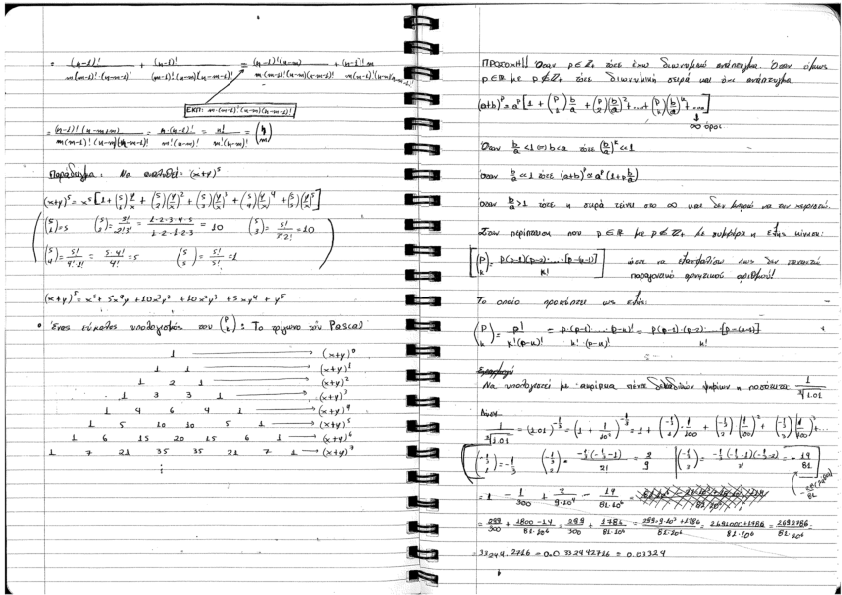 = (n-1)!/m(m-1)!·(n-m-1)! + (n-1)!/(m-1)!(n-m)(n-m-1)! = (n-1)!(n-m)/m(m-1)!(n-m)(n-m-1)! + (n-1)! m/m(m-1)!(n-m)(n-m-1)!
ΕΚΠ: m·(m-1)!(n-m)(n-m-1)!
= (n-1)!(n-m+m)/m(m-1)!(n-m)(n-m-1)! = n·(n-1)!/m!(n-m)! = n!/m!(n-m)! = (n m)
Παράδειγμα: Να αναπτυχθεί (x+y)^5
(x+y)^5 = x^5[1+(5 1)y/x + (5 2)(y/x)^2 + (5 3)(y/x)^3 + (5 4)(y/x)^4 + (5 5)(y/x)^5]
(5 1)=5 (5 2)= 5!/2!3! = 1·2·3·4·5/1·2·1·2·3 = 10 (5 3)= 5!/3!2! = 10
(5 4)= 5!/4!·1! = 5·4!/4! = 5 (5 5)= 5!/5! = 1
(x+y)^5 = x^5 + 5x^4y + 10x^3y^2 + 10x^2y^3 + 5xy^4 + y^5
• Ένας εύκολος υπολογισμός του (p k): Το τρίγωνο του Pascal
1 → (x+y)^0
1 1 → (x+y)^1
1 2 1 → (x+y)^2
1 3 3 1 → (x+y)^3
1 4 6 4 1 → (x+y)^4
1 5 10 10 5 1 → (x+y)^5
1 6 15 20 15 6 1 → (x+y)^6
1 7 21 35 35 21 7 1 → (x+y)^7
⋮
ΠΡΟΣΟΧΗ!! Όταν p∈Z+ τότε έχω διωνυμικό ανάπτυγμα. Όταν όμως
p∈R με p∉Z+ τότε διωνυμική σειρά και όχι ανάπτυγμα
(a+b)^p = a^p[1 + (p 1)b/a + (p 2)(b/a)^2 + ... + (p k)(b/a)^k + ...]
∞ όροι
Όταν b/a <1 ⇒ b<a τότε (b/a)^k <1
όταν b/a ≪1 τότε (a+b)^p ≈ a^p(1+p b/a)
όταν b/a >1 τότε η σειρά τείνει στο ∞ και δεν μπορώ να την χειριστώ.
Στην περίπτωση που p∈R με p∉Z+ με συμφέρει η εξής κίνηση:
[(p k) = p(p-1)(p-2)·...·[p-(k-1)]/k!] ώστε να εξασφαλίσω πως δεν
παραγοντικό αρνητικού αριθμού!
Το οποίο προκύπτει ως εξής:
(p k) = p!/k!(p-k)! = p·(p-1)·...·(p-k)!/k!·(p-k)! = p(p-1)·(p-2)·...[p-(k-1)]/k!
Να υπολογιστεί με ακρίβεια πέντε δεκαδικών ψηφίων η ποσότητα 1/∛1.01
Λύση
1/∛1.01 = (1.01)^-1/3 = (1 + 1/10^2)^-1/3 = 1 + (-1/3 1)·1/100 + (-1/3 2)(1/100)^2 + (-1/3 3)(1/100)^3 + ...
(-1/3 1) = -1/3 (-1/3 2) = -1/3(-1/3-1)/2! = 2/9
= 1 - 1/300 + 2/9·10^4 - 19/81·10^6 =
= 299/300 + 1800-14/81·10^6 = 299/300 + 1786/81·10^6